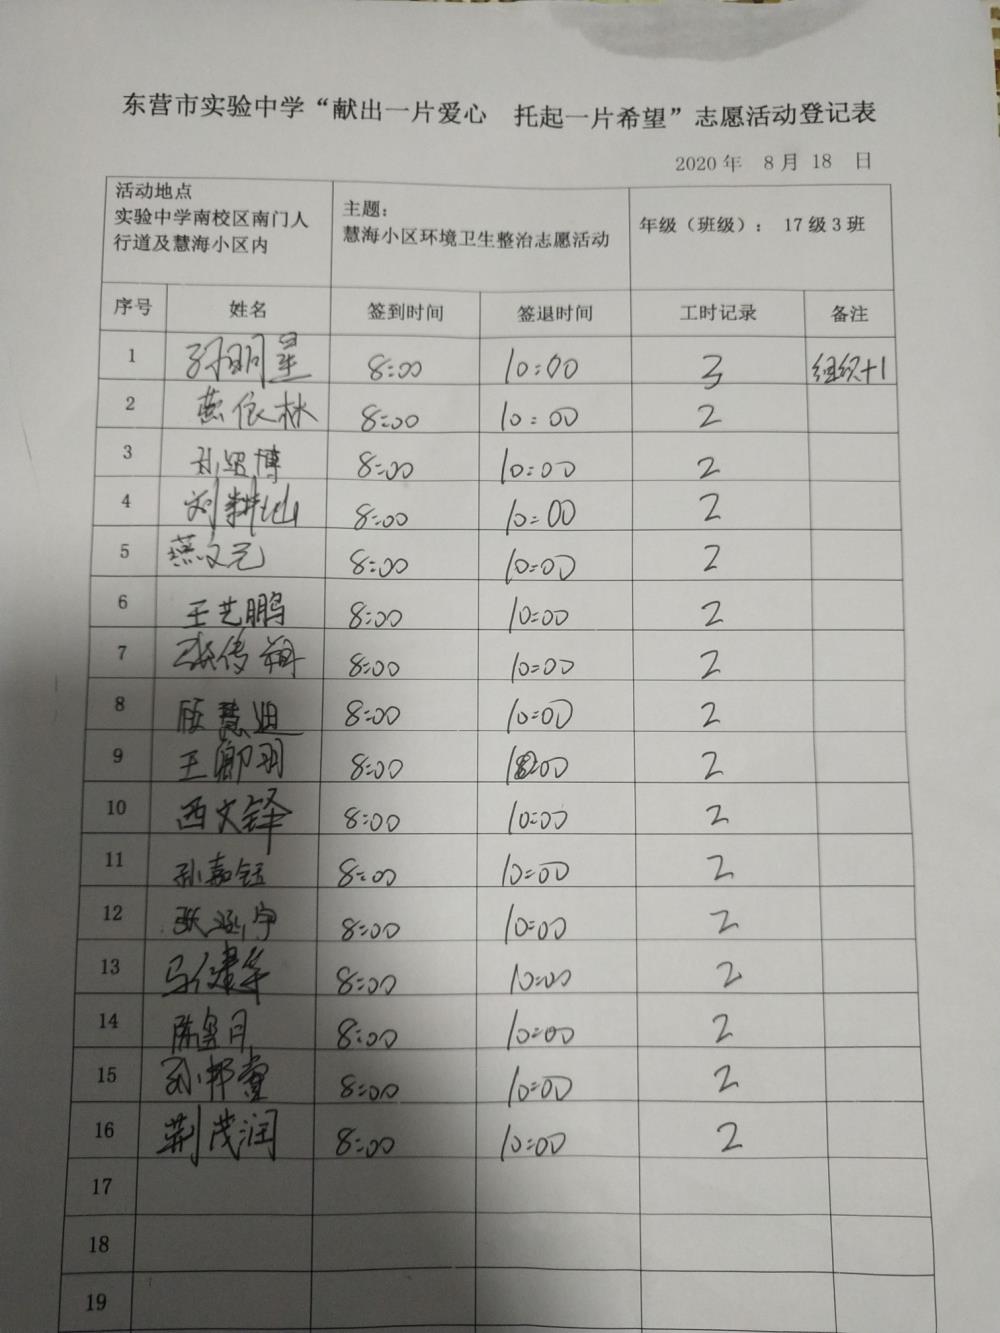 东营市实验中学“献出一片爱心 托起一片希望”志愿活动登记表
2020年 8月 18 日
活动地点
实验中学南校区南门人
行道及慧海小区内
主题：
慧海小区环境卫生整治志愿活动
年级（班级）： 17级3班
序号 姓名 签到时间 签退时间 工时记录 备注
1 孙明星 8:00 10:00 3 组织+1
2 燕依林 8:00 10:00 2
3 孙照博 8:00 10:00 2
4 刘耕屾 8:00 10:00 2
5 燕文元 8:00 10:00 2
6 王艺鹏 8:00 10:00 2
7 张传翔 8:00 10:00 2
8 慧迪 8:00 10:00 2
9 王卿羽 8:00 10:00 2
10 西文铎 8:00 10:00 2
11 孙嘉钰 8:00 10:00 2
12 张涵宁 8:00 10:00 2
13 马健华 8:00 10:00 2
14 陈昱月 8:00 10:00 2
15 孙邦堂 8:00 10:00 2
16 荆茂润 8:00 10:00 2
17
18
19